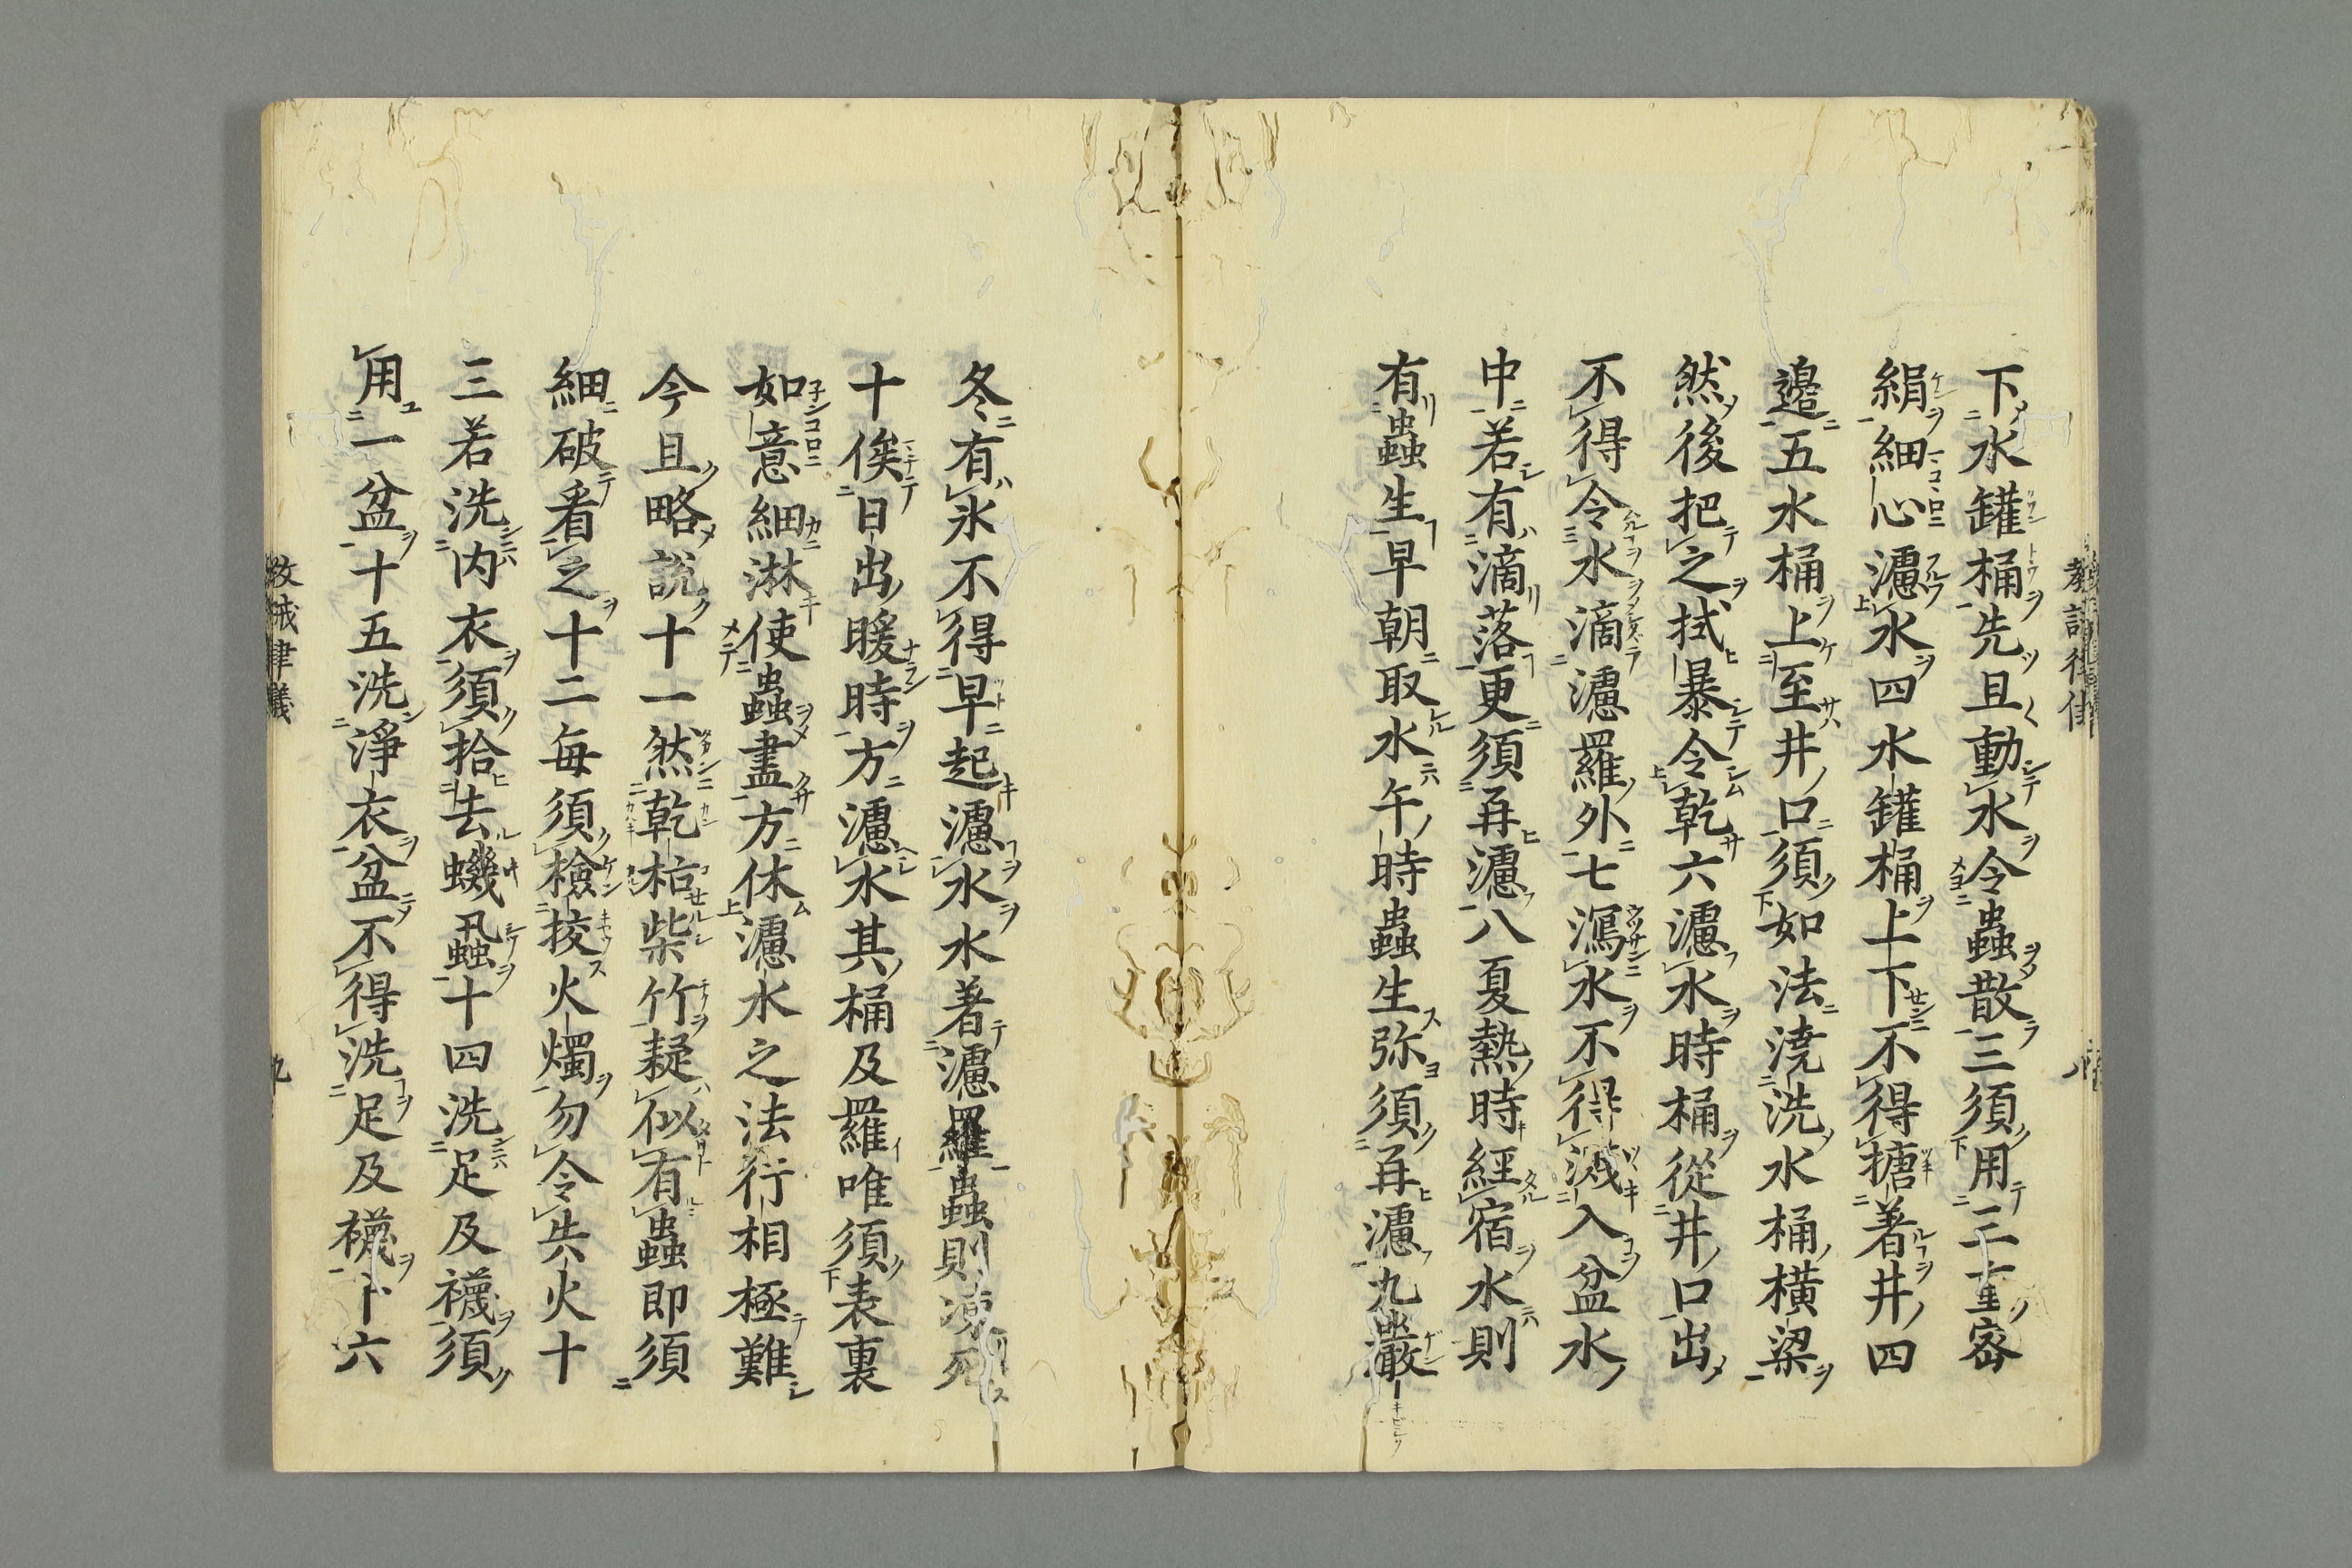 下水罐桶先且動水令蟲散三須用二重宻
絹細心濾水四水罐桶上下不得搪著井四
邉五水桶上至井口須如法澆洗水桶横梁
然後把之拭暴令乾六濾水時桶從井口出
不得令水滴濾羅外七瀉水不得濺入盆水
中若有滴落更須再濾八夏熱時經宿水則
有蟲生早朝取水午時蟲生弥須再濾九嚴
冬有氷不得早起濾水水著濾羅蟲則凍死
十俟日出暖時方濾水其桶及羅唯須表裏
如意細淋使蟲盡方休濾水之法行相極難
今且略説十一然乾枯柴竹疑似有蟲即須
細破看之十二毎須檢挍火燭勿令失火十
三若洗内衣須拾去蟣蝨十四洗足及襪須
用一盆十五洗淨衣盆不得洗足及襪十六
教誡律儀
九